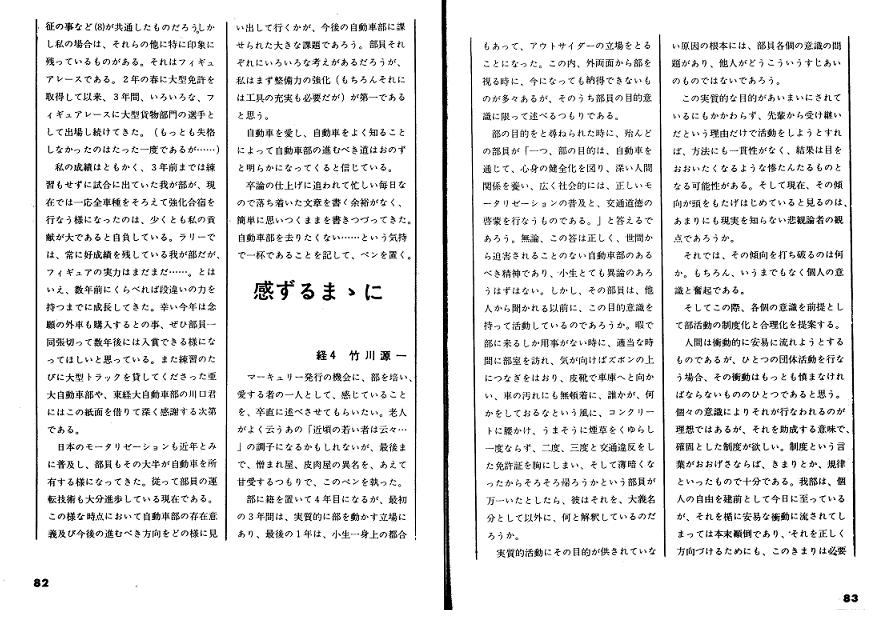 徴の事など(8)が共通したものだろうしか
し私の場合は、それらの他に特に印象に
残っているものがある。それはフィギュ
アレースである。2年の春に大型免許を
取得して以来、3年間、いろいろな、フ
ィギュアレースに大型貨物部門の選手と
して出場し続けてきた。(もっとも失格
しなかったのはたった一度であるが……)
私の成績はともかく、3年前までは練
習もせずに試合に出ていた我が部が、現
在では一応全車種をそろえて強化合宿を
行なう様になったのは、少くとも私の貢
献が大であると自負している。ラリーで
は、常に好成績を残している我が部だが、
フィギュアの実力はまだまだ……。とは
いえ、数年前にくらべれば段違いの力を
持つまでに成長してきた。幸い今年は念
願の外車も購入するとの事、ぜひ部員一
同張切って数年後には入賞できる様にな
ってほしいと思っている。また練習のた
びに大型トラックを貸してくださった亜
大自動車部や、東経大自動車部の川口君
にはこの紙面を借りて深く感謝する次第
である。
日本のモータリゼーションも近年とみ
に普及し、部員もその大半が自動車を所
有する様になってきた。従って部員の運
転技術も大分進歩している現在である。
この様な時点において自動車部の存在意
義及び今後の進むべき方向をどの様に見
い出して行くかが、今後の自動車部に課
せられた大きな課題であろう。部員それ
ぞれにいろいろな考えがあるだろうが、
私はまず整備力の強化(もちろんそれに
は工具の充実も必要だが)が第一である
と思う。
自動車を愛し、自動車をよく知ること
によって自動車部の進むべき道はおのず
と明らかになってくると信じている。
卒論の仕上げに追われて忙しい毎日な
ので落ち着いた文章を書く余裕がなく、
簡単に思いつくままを書きつづってきた。
自動車部を去りたくない……という気持
で一杯であることを記して、ペンを置く。
感ずるまゝに
経4 竹川源一
マーキュリー発行の機会に、部を培い、
愛する者の一人として、感じていること
を、卒直に述べさせてもらいたい。老人
がよく云うあの「近頃の若い者は云々…
」の調子になるかもしれないが、最後ま
で、憎まれ屋、皮肉屋の異名を、あえて
甘受するつもりで、このペンを執った。
部に籍を置いて4年目になるが、最初
の3年間は、実質的に部を動かす立場に
あり、最後の1年は、小生一身上の都合
82
もあって、アウトサイダーの立場をとる
ことになった。この内、外両面から部を
視る時に、今になっても納得できないも
のが多々あるが、そのうち部員の目的意
識に限って述べるつもりである。
部の目的をと尋ねられた時に、殆んど
の部員が「一つ、部の目的は、自動車を
通じて、心身の健全化を図り、深い人間
関係を養い、広く社会的には、正しいモ
ータリゼーションの普及と、交通道徳の
啓蒙を行なうものである。」と答えるで
あろう。無論、この答は正しく、世間か
ら迫害されることのない自動車部のある
べき精神であり、小生とても異論のあろ
うはずはない。しかし、その部員は、他
人から聞かれる以前に、この目的意識を
持って活動しているのであろうか。暇で
部に来るしか用事がない時に、適当な時
間に部室を訪れ、気が向けばズボンの上
につなぎをはおり、皮靴で車庫へと向か
い、車の汚れにも無頓着に、誰かが、何
かをしておるなという風に、コンクリー
トに腰かけ、うまそうに煙草をくゆらし
一度ならず、二度、三度と交通違反をし
た免許証を胸にしまい、そして薄暗くな
ったからそろそろ帰ろうかという部員が
万一いたとしたら、彼はそれを、大義名
分として以外に、何と解釈しているのだ
ろうか。
実質的活動にその目的が供されていな
い原因の根本には、部員各個の意識の問
題があり、他人がどうこういうすじあい
のものではないであろう。
この実質的な目的があいまいにされて
いるにもかかわらず、先輩から受け継い
だという理由だけで活動をしようとすれ
ば、方法にも一貫性がなく、結果は目を
おおいたくなるような惨たんたるものと
なる可能性がある。そして現在、その傾
向が頭をもたげはじめていると見るのは、
あまりにも現実を知らない悲観論者の観
点であろうか。
それでは、その傾向を打ち破るのは何
か。もちろん、いうまでもなく個人の意
識と奮起である。
そしてこの際、各個の意識を前提とし
て部活動の制度化と合理化を提案する。
人間は衝動的に安易に流れようとする
ものであるが、ひとつの団体活動を行な
う場合、その衝動はもっとも慎まなけれ
ばならないもののひとつであると思う。
個々の意識によりそれが行なわれるのが
理想ではあるが、それを助成する意味で、
確固とした制度が欲しい。制度という言
葉がおおげさならば、きまりとか、規律
といったもので十分である。我部は、個
人の自由を建前として今日に至っている
が、それを楯に安易な衝動に流されてし
まっては本末顛倒であり、それを正しく
方向づけるためにも、このきまりは必要
83